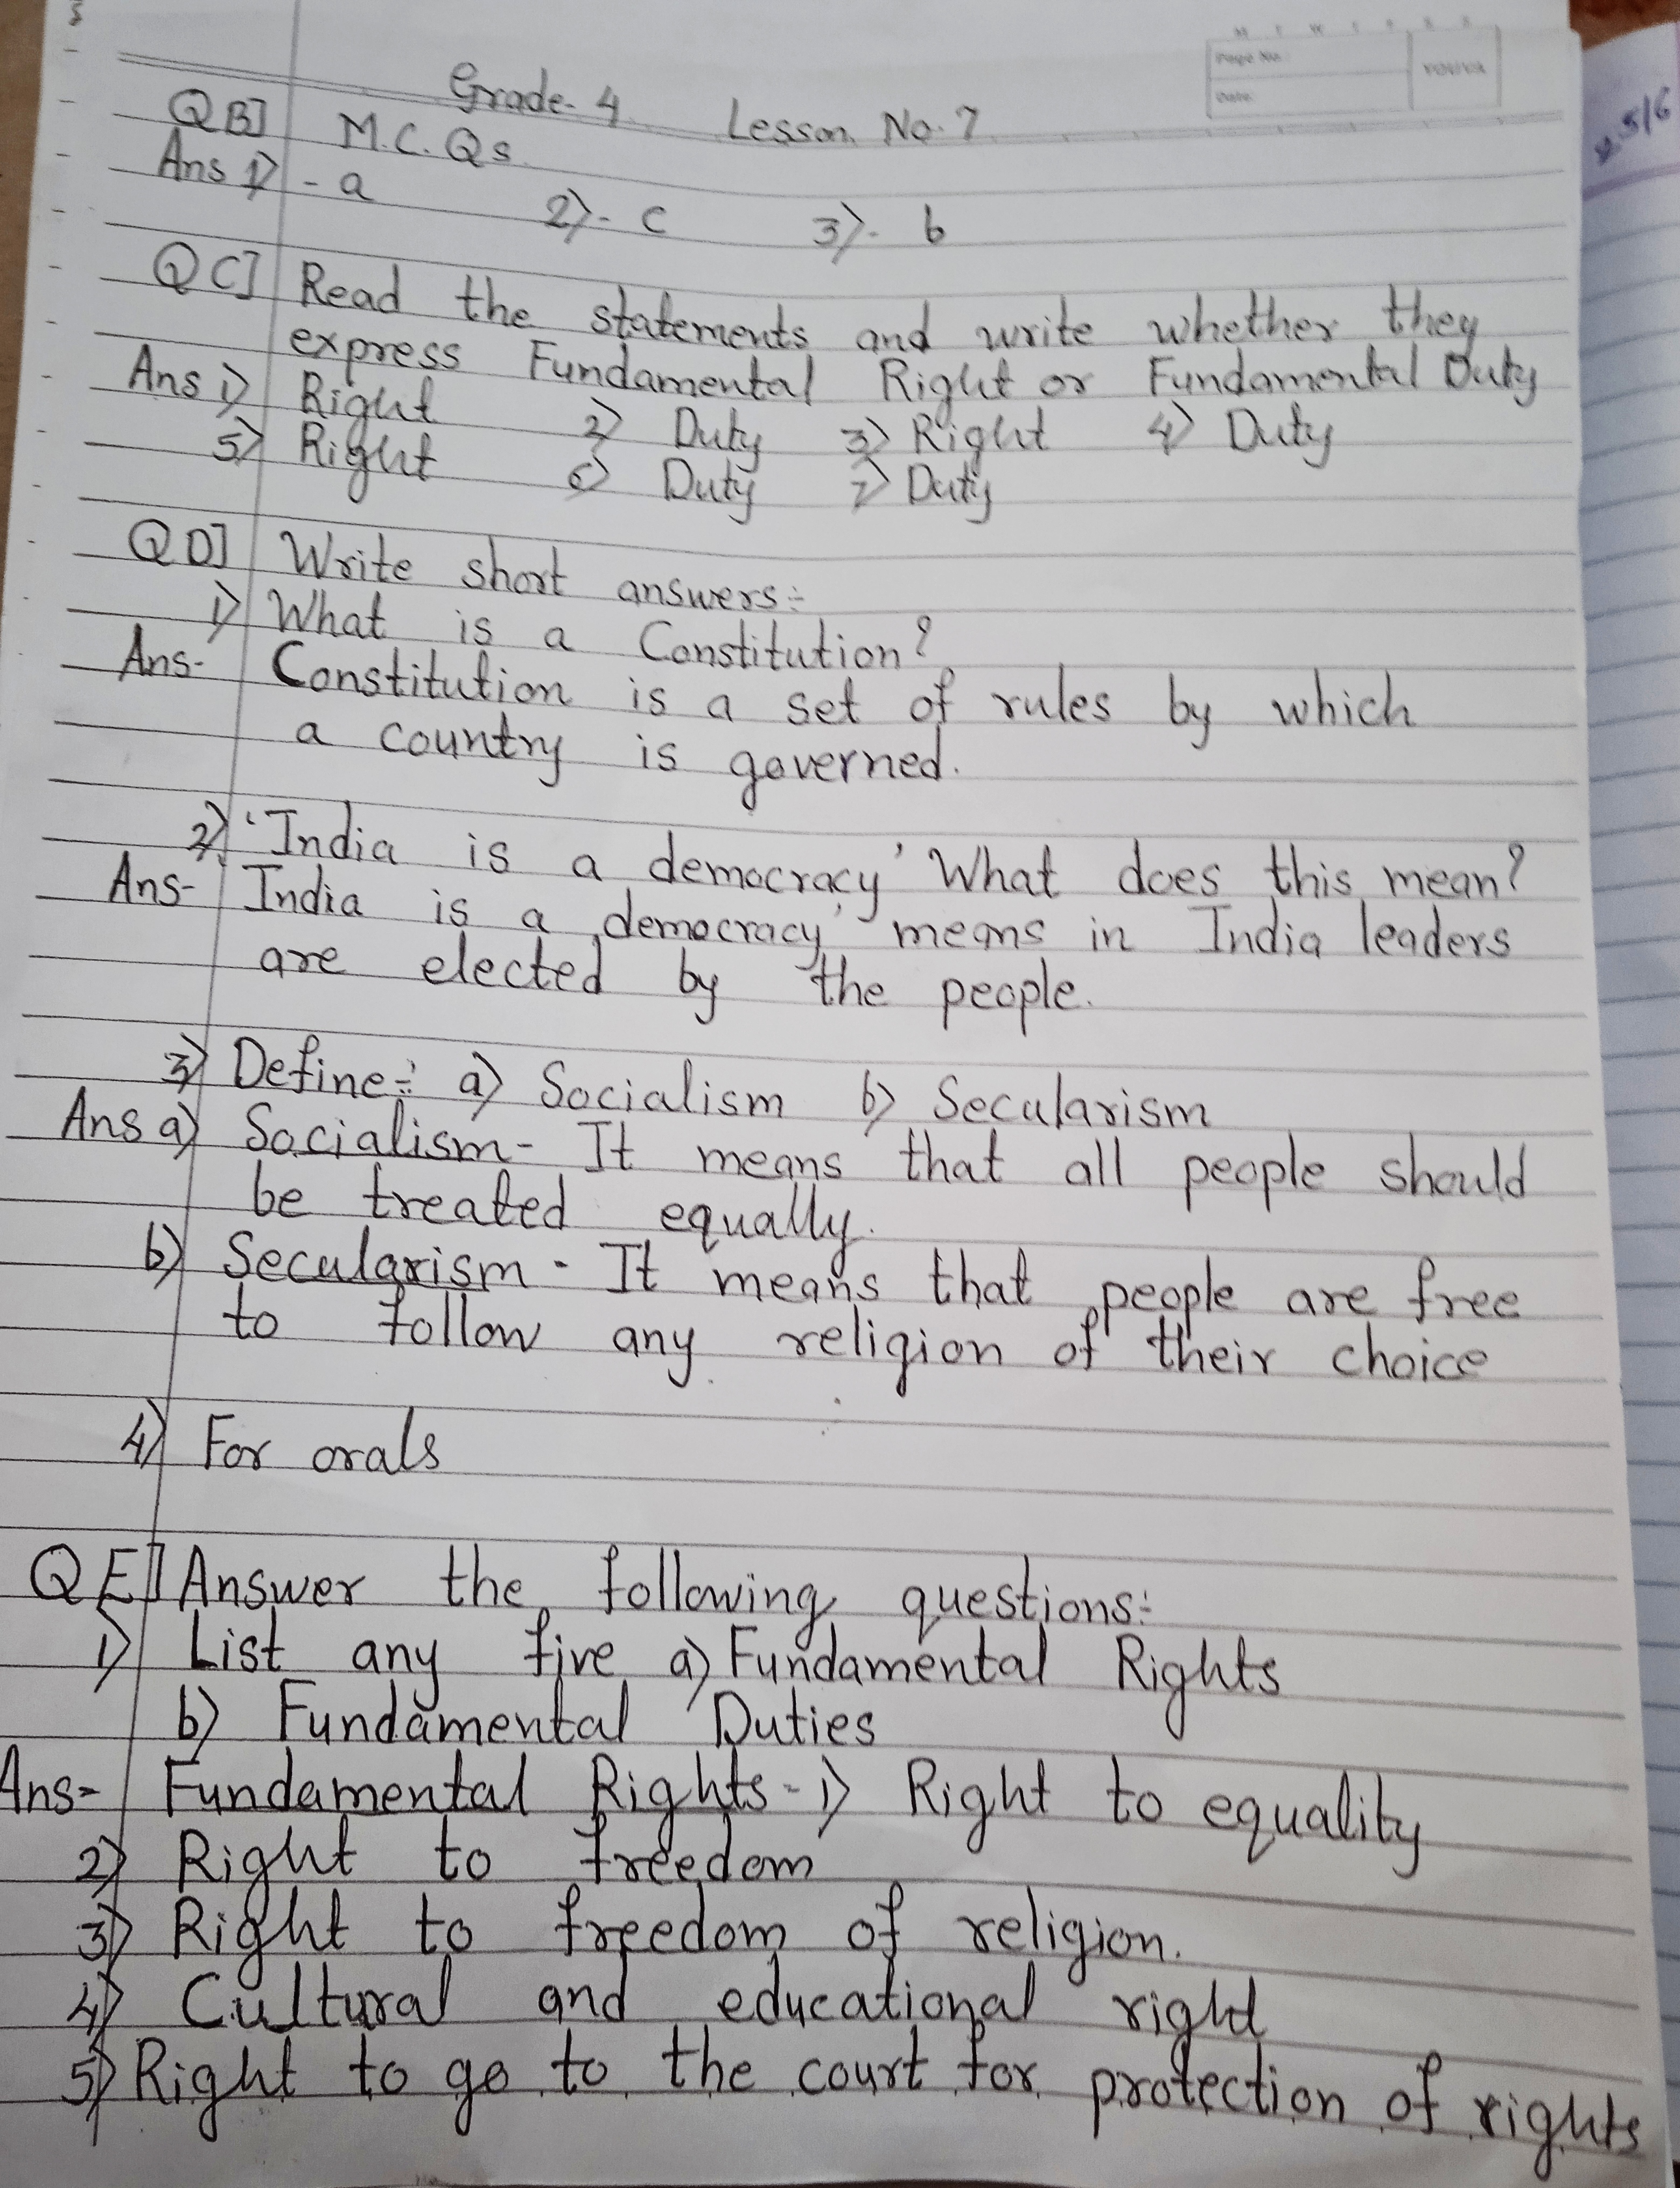 M T W T F S S
Page No.:
Date:
YOUVA
Grade- 4 Lesson No. 7
Q B] M.C.Qs
Ans 1) - a 2)- c 3)- b
Q C] Read the statements and write whether they
express Fundamental Right or Fundamental Duty
Ans 1) Right 2) Duty 3) Right 4) Duty
5) Right 6) Duty 7) Duty
Q D] Write short answers:-
1) What is a Constitution?
Ans- Constitution is a set of rules by which
a country is governed.
2) 'India is a democracy' What does this mean?
Ans- 'India is a democracy' means in India leaders
are elected by the people.
3) Define:- a) Socialism b) Secularism
Ans a) Socialism- It means that all people should
be treated equally.
b) Secularism - It means that people are free
to follow any religion of their choice
4) For orals
Q E] Answer the following questions:-
1) List any five a) Fundamental Rights
b) Fundamental Duties
Ans- Fundamental Rights- 1) Right to equality
2) Right to freedom
3) Right to freedom of religion.
4) Cultural and educational right
5) Right to go to the court for protection of rights